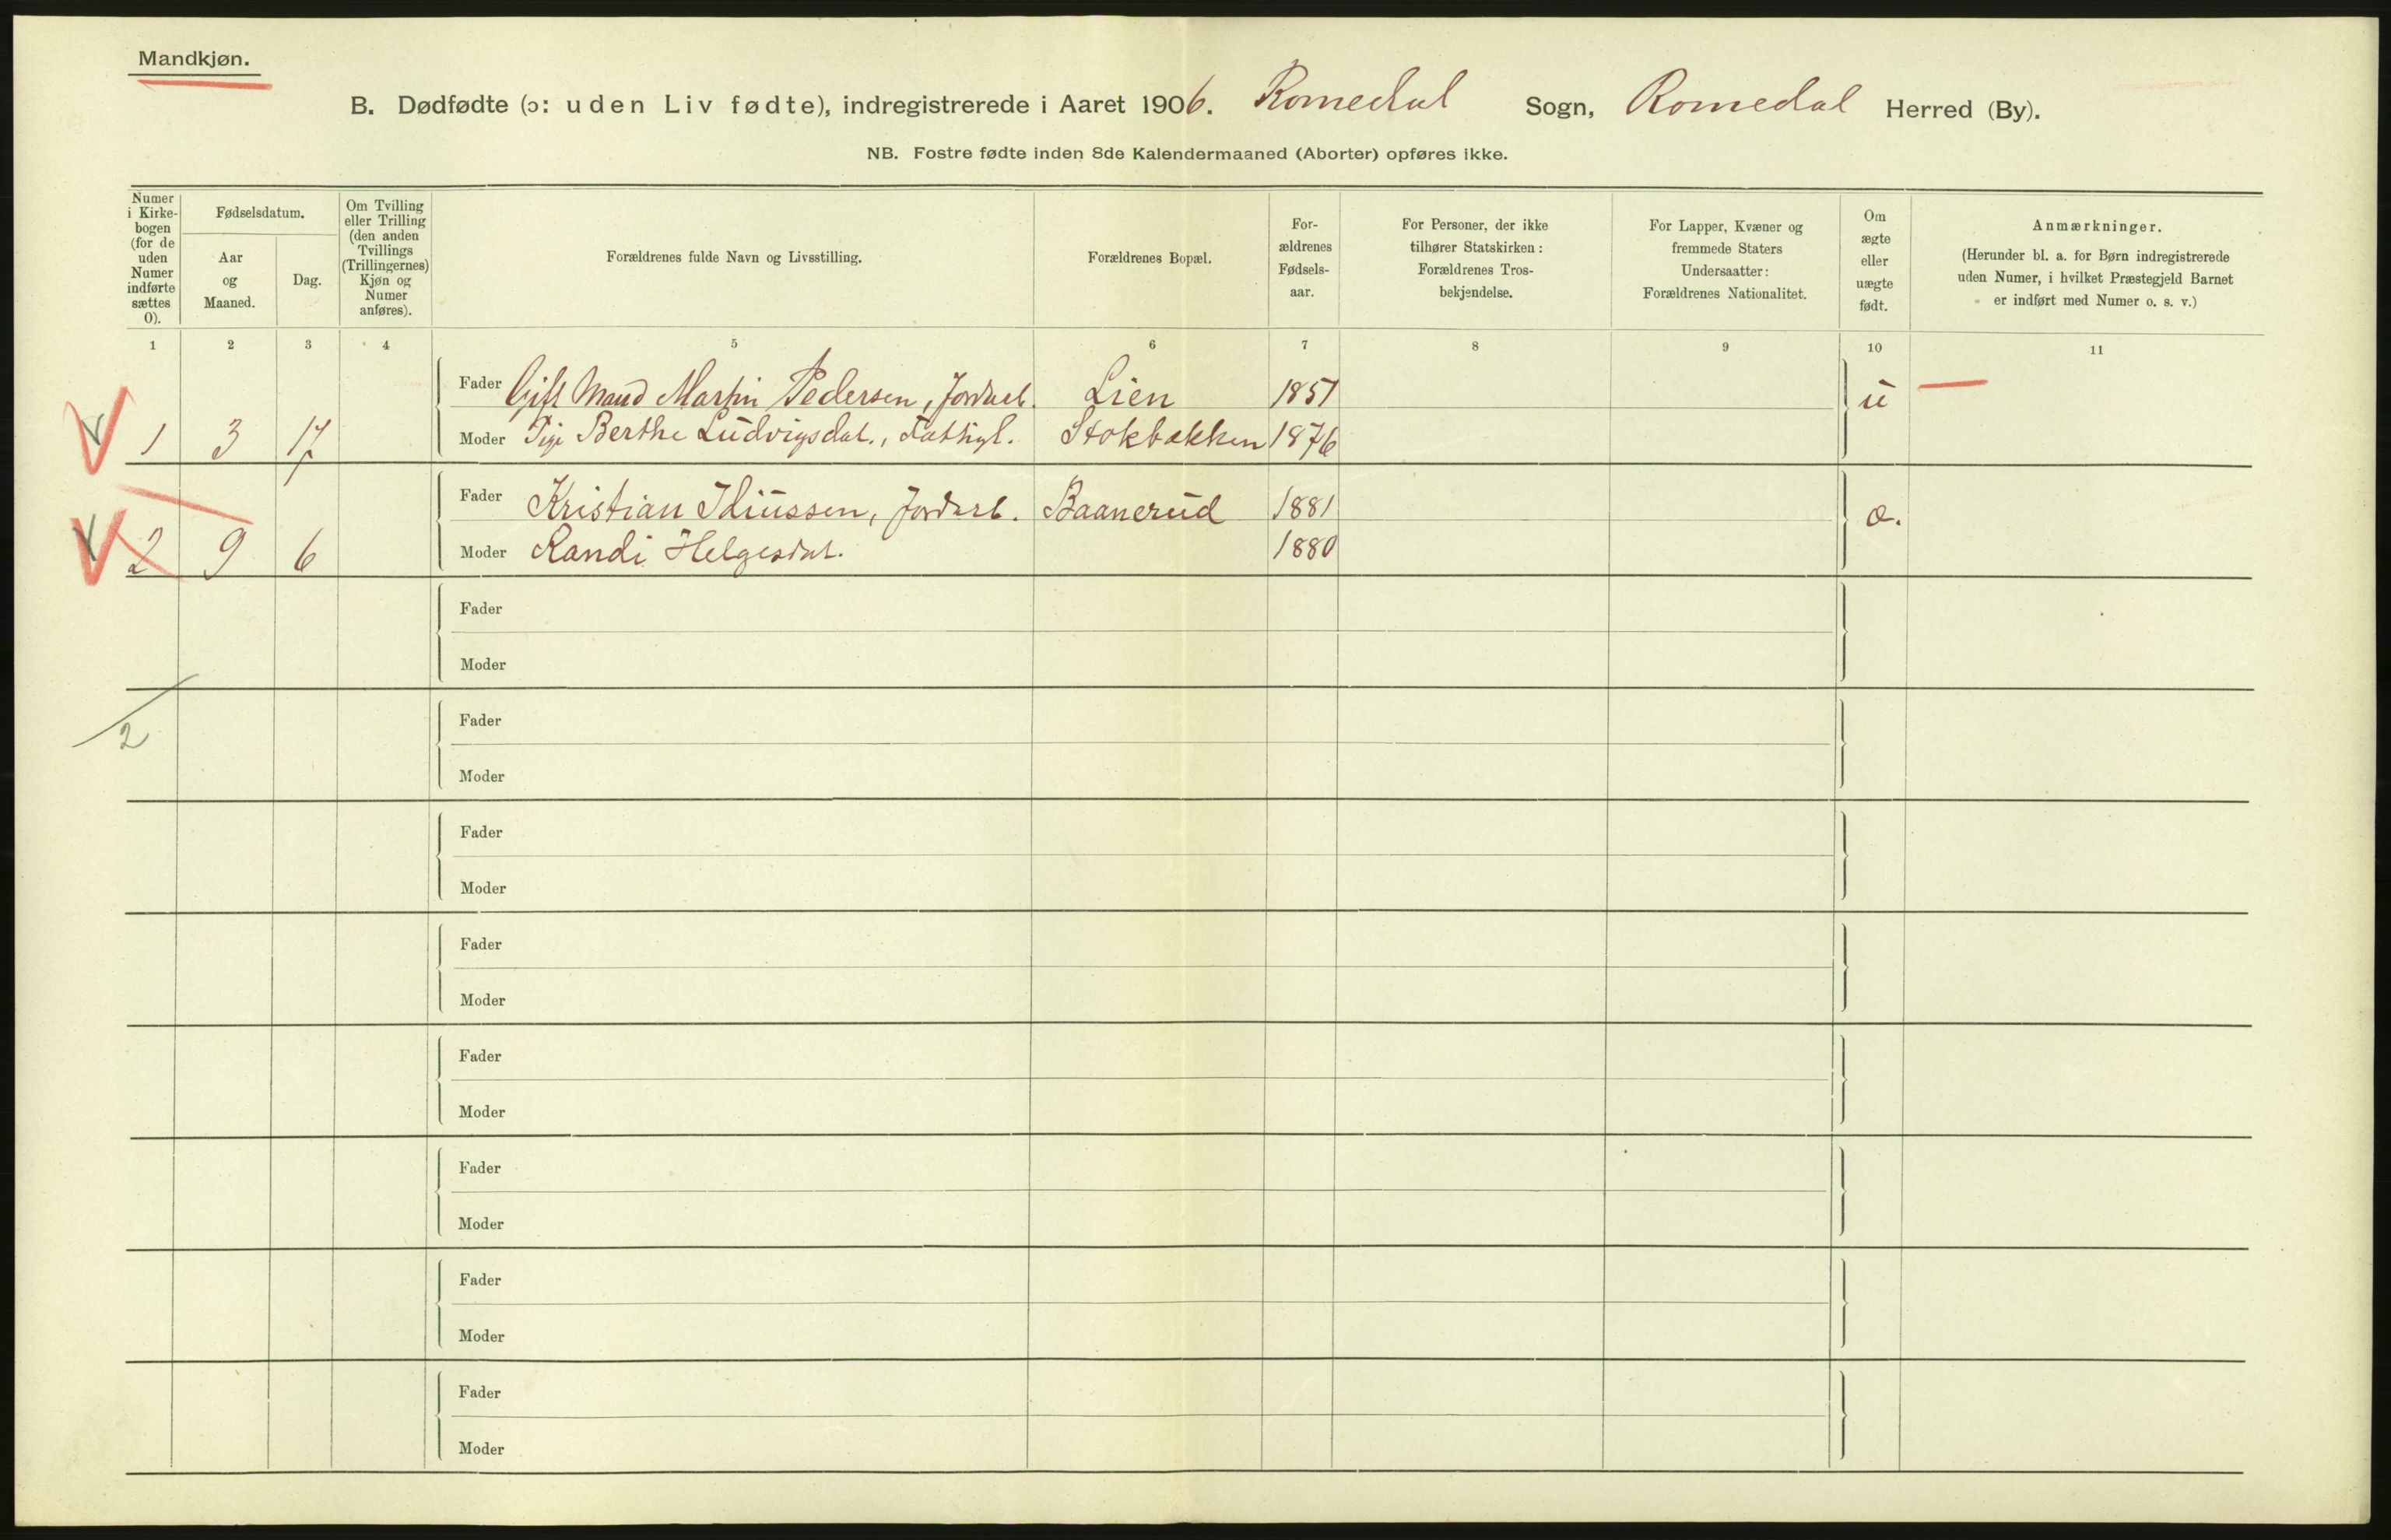 Mandkjøn.
B. Dødfødte (ɔ: uden Liv fødte), indregistrerede i Aaret 1906. Romedal Sogn, Romedal Herred (By).
NB. Fostre fødte inden 8de Kalendermaaned (Aborter) opføres ikke.
Numer i Kirke-bogen (for de uden Numer indførte sættes 0).
Fødselsdatum.
Aar og Maaned.
Dag.
Om Tvilling eller Trilling (den anden Tvillings (Trillingernes) Kjøn og Numer anføres).
Forældrenes fulde Navn og Livsstilling.
Forældrenes Bopæl.
For-ældrenes Fødsels-aar.
For Personer, der ikke tilhører Statskirken: Forældrenes Tros-bekjendelse.
For Lapper, Kvæner og fremmede Staters Undersaatter: Forældrenes Nationalitet.
Om ægte eller uægte født.
Anmærkninger.
(Herunder bl. a. for Børn indregistrerede uden Numer, i hvilket Præstegjeld Barnet er indført med Numer o. s. v.)
1 2 3 4 5 6 7 8 9 10 11
Fader Gift Mand Martin Pedersen, Jordarb. Lien 1851 u
1 3 17 Moder Pige Berthe Ludvigsdat., Stokbakken 1876
Fader Kristian Jordarb. Baanerud 1881 æ.
2 9 6 Moder Randi Helgesdat. 1880
Fader
Moder
Fader
2
Moder
Fader
Moder
Fader
Moder
Fader
Moder
Fader
Moder
Fader
Moder
Fader
Moder